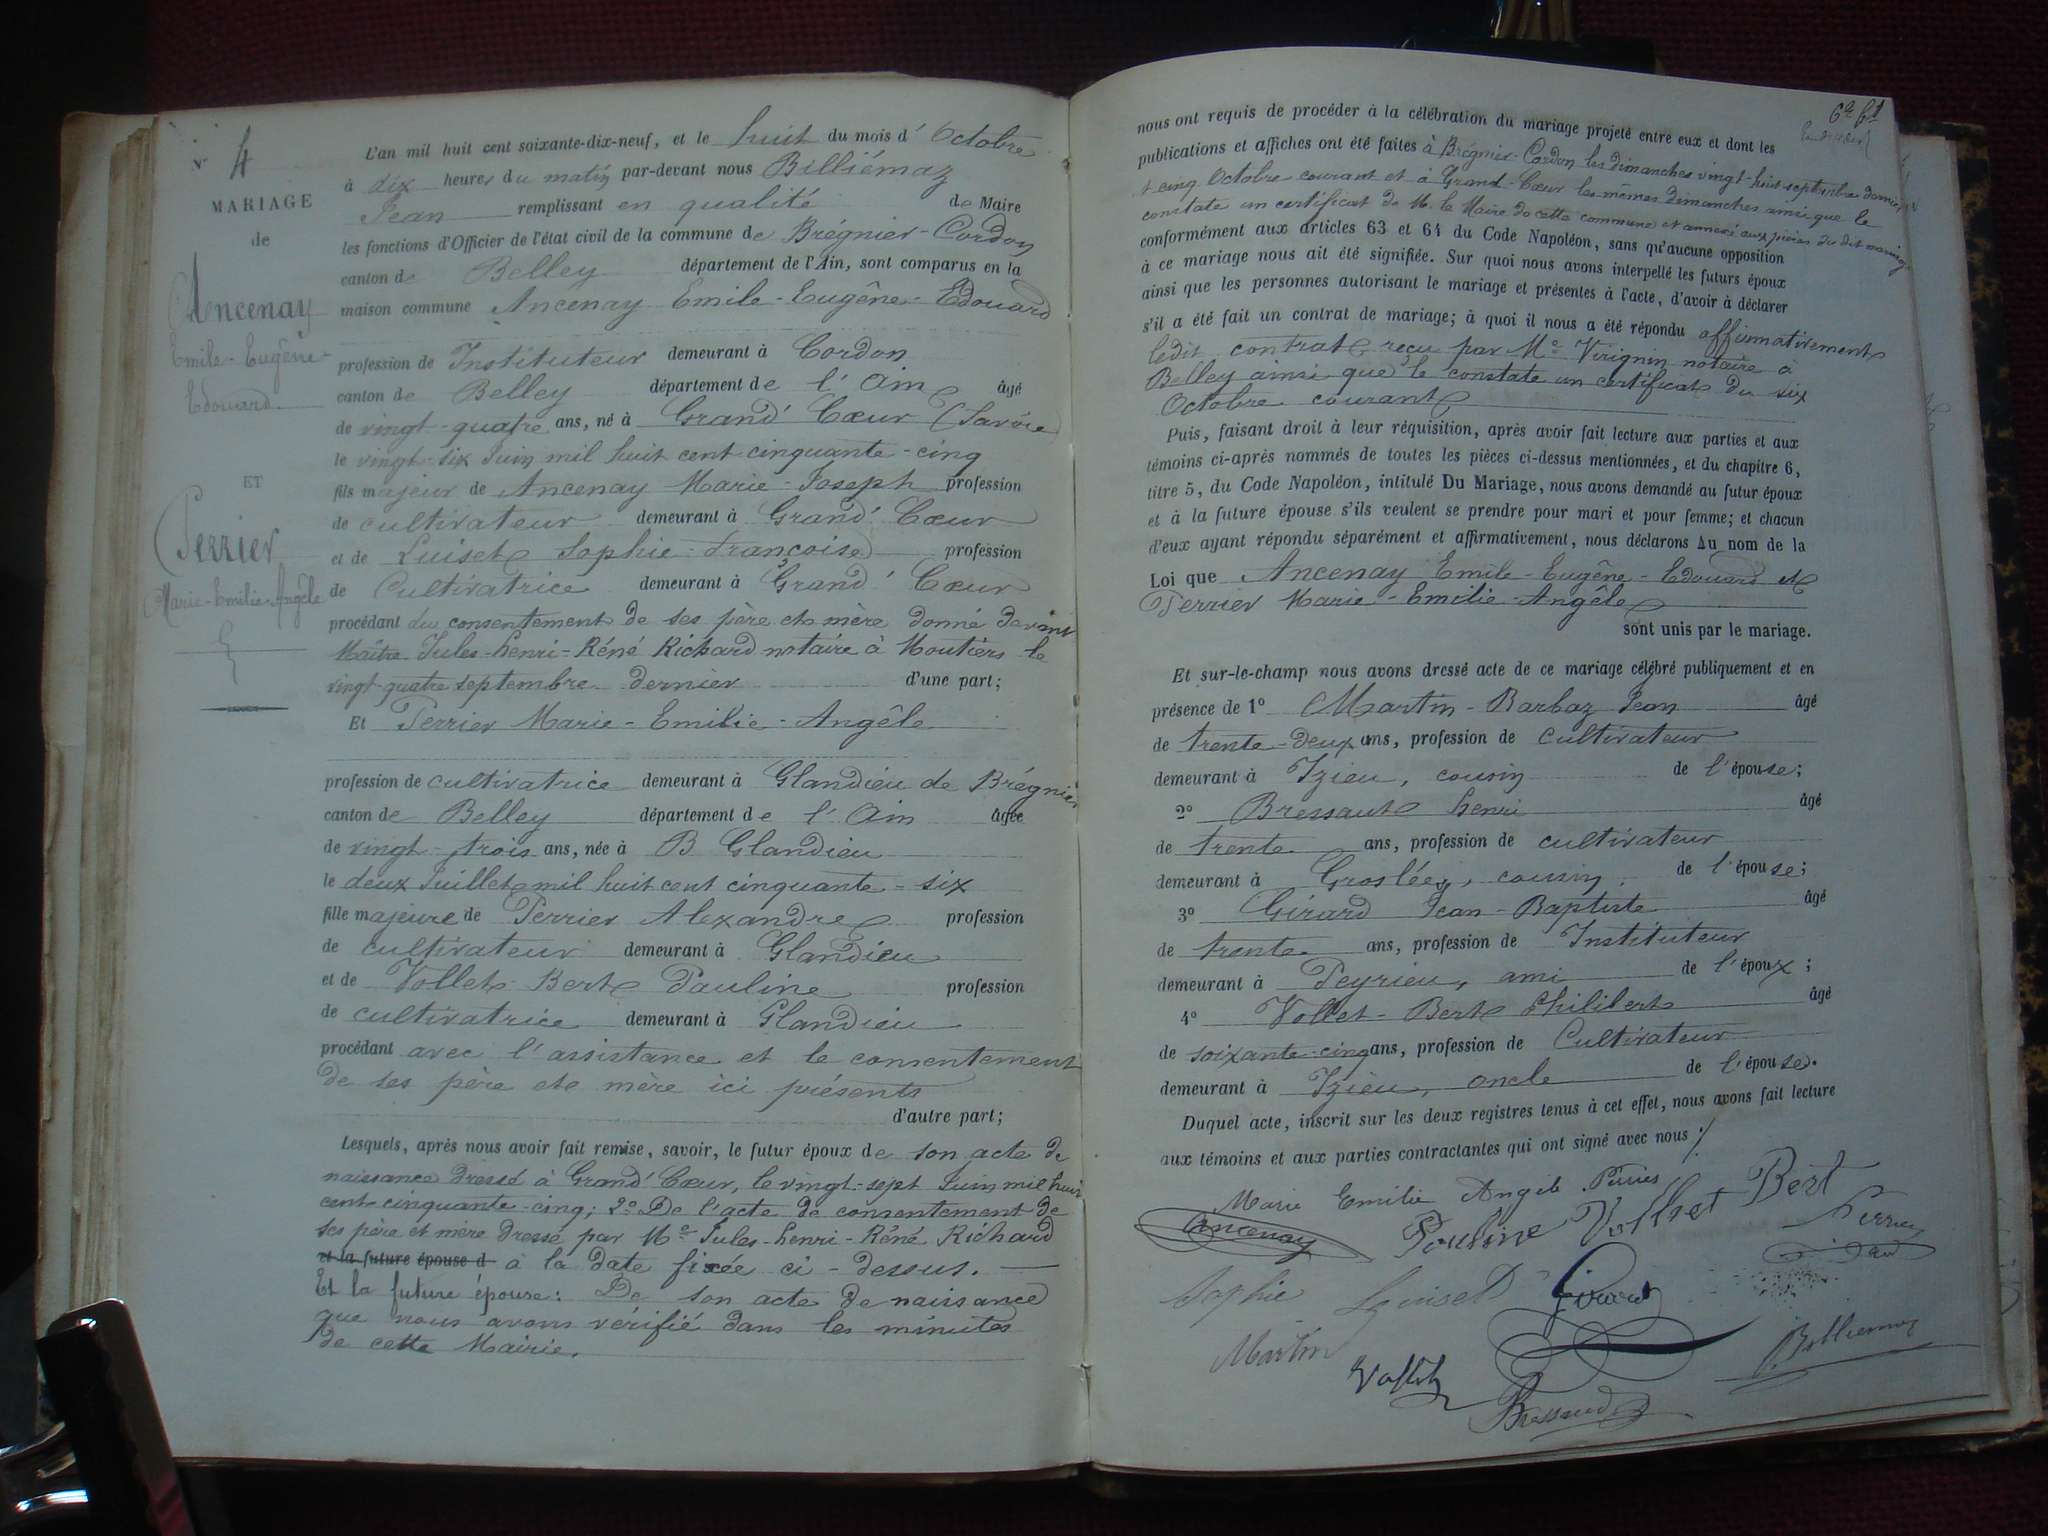 N° 4
MARIAGE
de
Ancenay
Emile-Eugêne-
Edouard.
ET
Perrier
Marie-Emilie-Angêle
L'an mil huit cent soixante-dix-neuf, et le huit du mois d' Octobre
à dix heures du matin par-devant nous Billiémaz
Jean remplissant en qualité de Maire
les fonctions d'Officier de l'état civil de la commune de Brégnier-Cordon
canton de Belley département de l'Ain, sont comparus en la
maison commune Ancenay Emile-Eugêne-Edouard
profession de Instituteur demeurant à Cordon
canton de Belley département de l'Ain âgé
de vingt-quatre ans, né à Grand' Cœur (Savoie)
le vingt-six Juin mil huit cent cinquante-cinq
fils majeur de Ancenay Marie-Joseph profession
de cultivateur demeurant à Grand' Cœur
et de Luiset Sophie-Françoise profession
de Cultivatrice demeurant à Grand' Cœur
procédant du consentement de ses père et mère donné devant
Maître Jules-henri-Réné Richard notaire à Moutiers le
vingt-quatre septembre dernier d'une part;
Et Perrier Marie-Emilie-Angêle
profession de cultivatrice demeurant à Glandieu de Brégnier
canton de Belley département de l'Ain âgée
de vingt-trois ans, née à B Glandieu
le deux Juillet mil huit cent cinquante-six
fille majeure de Perrier Alexandre profession
de cultivateur demeurant à Glandieu
et de Vollet-Bert Pauline profession
de cultivatrice demeurant à Glandieu
procédant avec l'assistance et le consentement
de ses père et mère ici présents
d'autre part;
Lesquels, après nous avoir fait remise, savoir, le futur époux de son acte de
naissance dressé à Grand' Cœur, le vingt-sept Juin mil huit
cent cinquante-cinq; 2° De l'acte de consentement de
ses père et mère dressé par Me Jules-henri-Réné Richard
et la future épouse d à la date fixée ci-dessus.
Et la future épouse: De son acte de naissance
que nous avons vérifié dans les minutes
de cette Mairie.
nous ont requis de procéder à la célébration du mariage projeté entre eux et dont les
publications et affiches ont été faites à Brégnier-Cordon les dimanches vingt-huit septembre dernier
et cinq Octobre courant et à Grand-Cœur les mêmes dimanches ainsi que le
constate un certificat de M. le Maire de cette commune et annexé aux pièces du dit mariage
conformément aux articles 63 et 64 du Code Napoléon, sans qu'aucune opposition
à ce mariage nous ait été signifiée. Sur quoi nous avons interpellé les futurs époux
ainsi que les personnes autorisant le mariage et présentes à l'acte, d'avoir à déclarer
s'il a été fait un contrat de mariage; à quoi il nous a été répondu affirmativement
ledit contrat reçu par Me Virignin notaire à
Belley ainsi que le constate un certificat du six
Octobre courant
Puis, faisant droit à leur réquisition, après avoir fait lecture aux parties et aux
témoins ci-après nommés de toutes les pièces ci-dessus mentionnées, et du chapitre 6,
titre 5, du Code Napoléon, intitulé Du Mariage, nous avons demandé au futur époux
et à la future épouse s'ils veulent se prendre pour mari et pour femme; et chacun
d'eux ayant répondu séparément et affirmativement, nous déclarons Au nom de la
Loi que Ancenay Emile-Eugêne-Edouard et
Perrier Marie-Emilie-Angêle
sont unis par le mariage.
Et sur-le-champ nous avons dressé acte de ce mariage célébré publiquement et en
présence de 1° Martin-Barbaz Jean âgé
de trente-deux ans, profession de cultivateur
demeurant à Izieu, cousin de l'épouse;
2° Bressaut henri âgé
de trente ans, profession de cultivateur
demeurant à Groslée, cousin de l'épouse;
3° Girard Jean-Baptiste âgé
de trente ans, profession de Instituteur
demeurant à Peyrieu, ami de l'époux;
4° Vollet-Bert Philibert âgé
de soixante-cinq ans, profession de Cultivateur
demeurant à Izieu, oncle de l'épouse.
Duquel acte, inscrit sur les deux registres tenus à cet effet, nous avons fait lecture
aux témoins et aux parties contractantes qui ont signé avec nous
Marie Emilie Angèle Perrier
Ancenay Pauline Vollet Bert Perrier
Sophie Louiset Girard
Martin Vollet Billiemaz
Bressaud